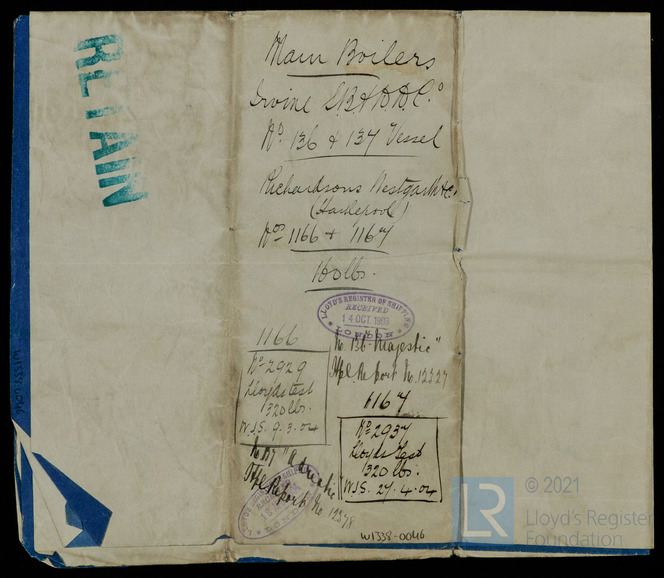 RETAIN
Main Boilers
Irvine S.B. & D.D. Co
No 136 & 137 Vessel
Richardsons Westgarth & Co
(Hartlepool)
Nos 1166 & 1167
160 lbs.
LLOYD'S REGISTER OF SHIPPING
RECEIVED
14 OCT. 1903
LONDON
1166
No 2929
Lloyds test
320 lbs.
W.J.S. 9.3.04
No. 136 "Majestic"
Hpl Report No. 12327
1167
No 2937
Lloyds Test
320 lbs.
W.J.S. 27.4.04
No. 137 "Adriatic"
Hpl Report No 12378
W1338-0046
W1338-0046
© 2021
LR
Lloyd's Register
Foundation